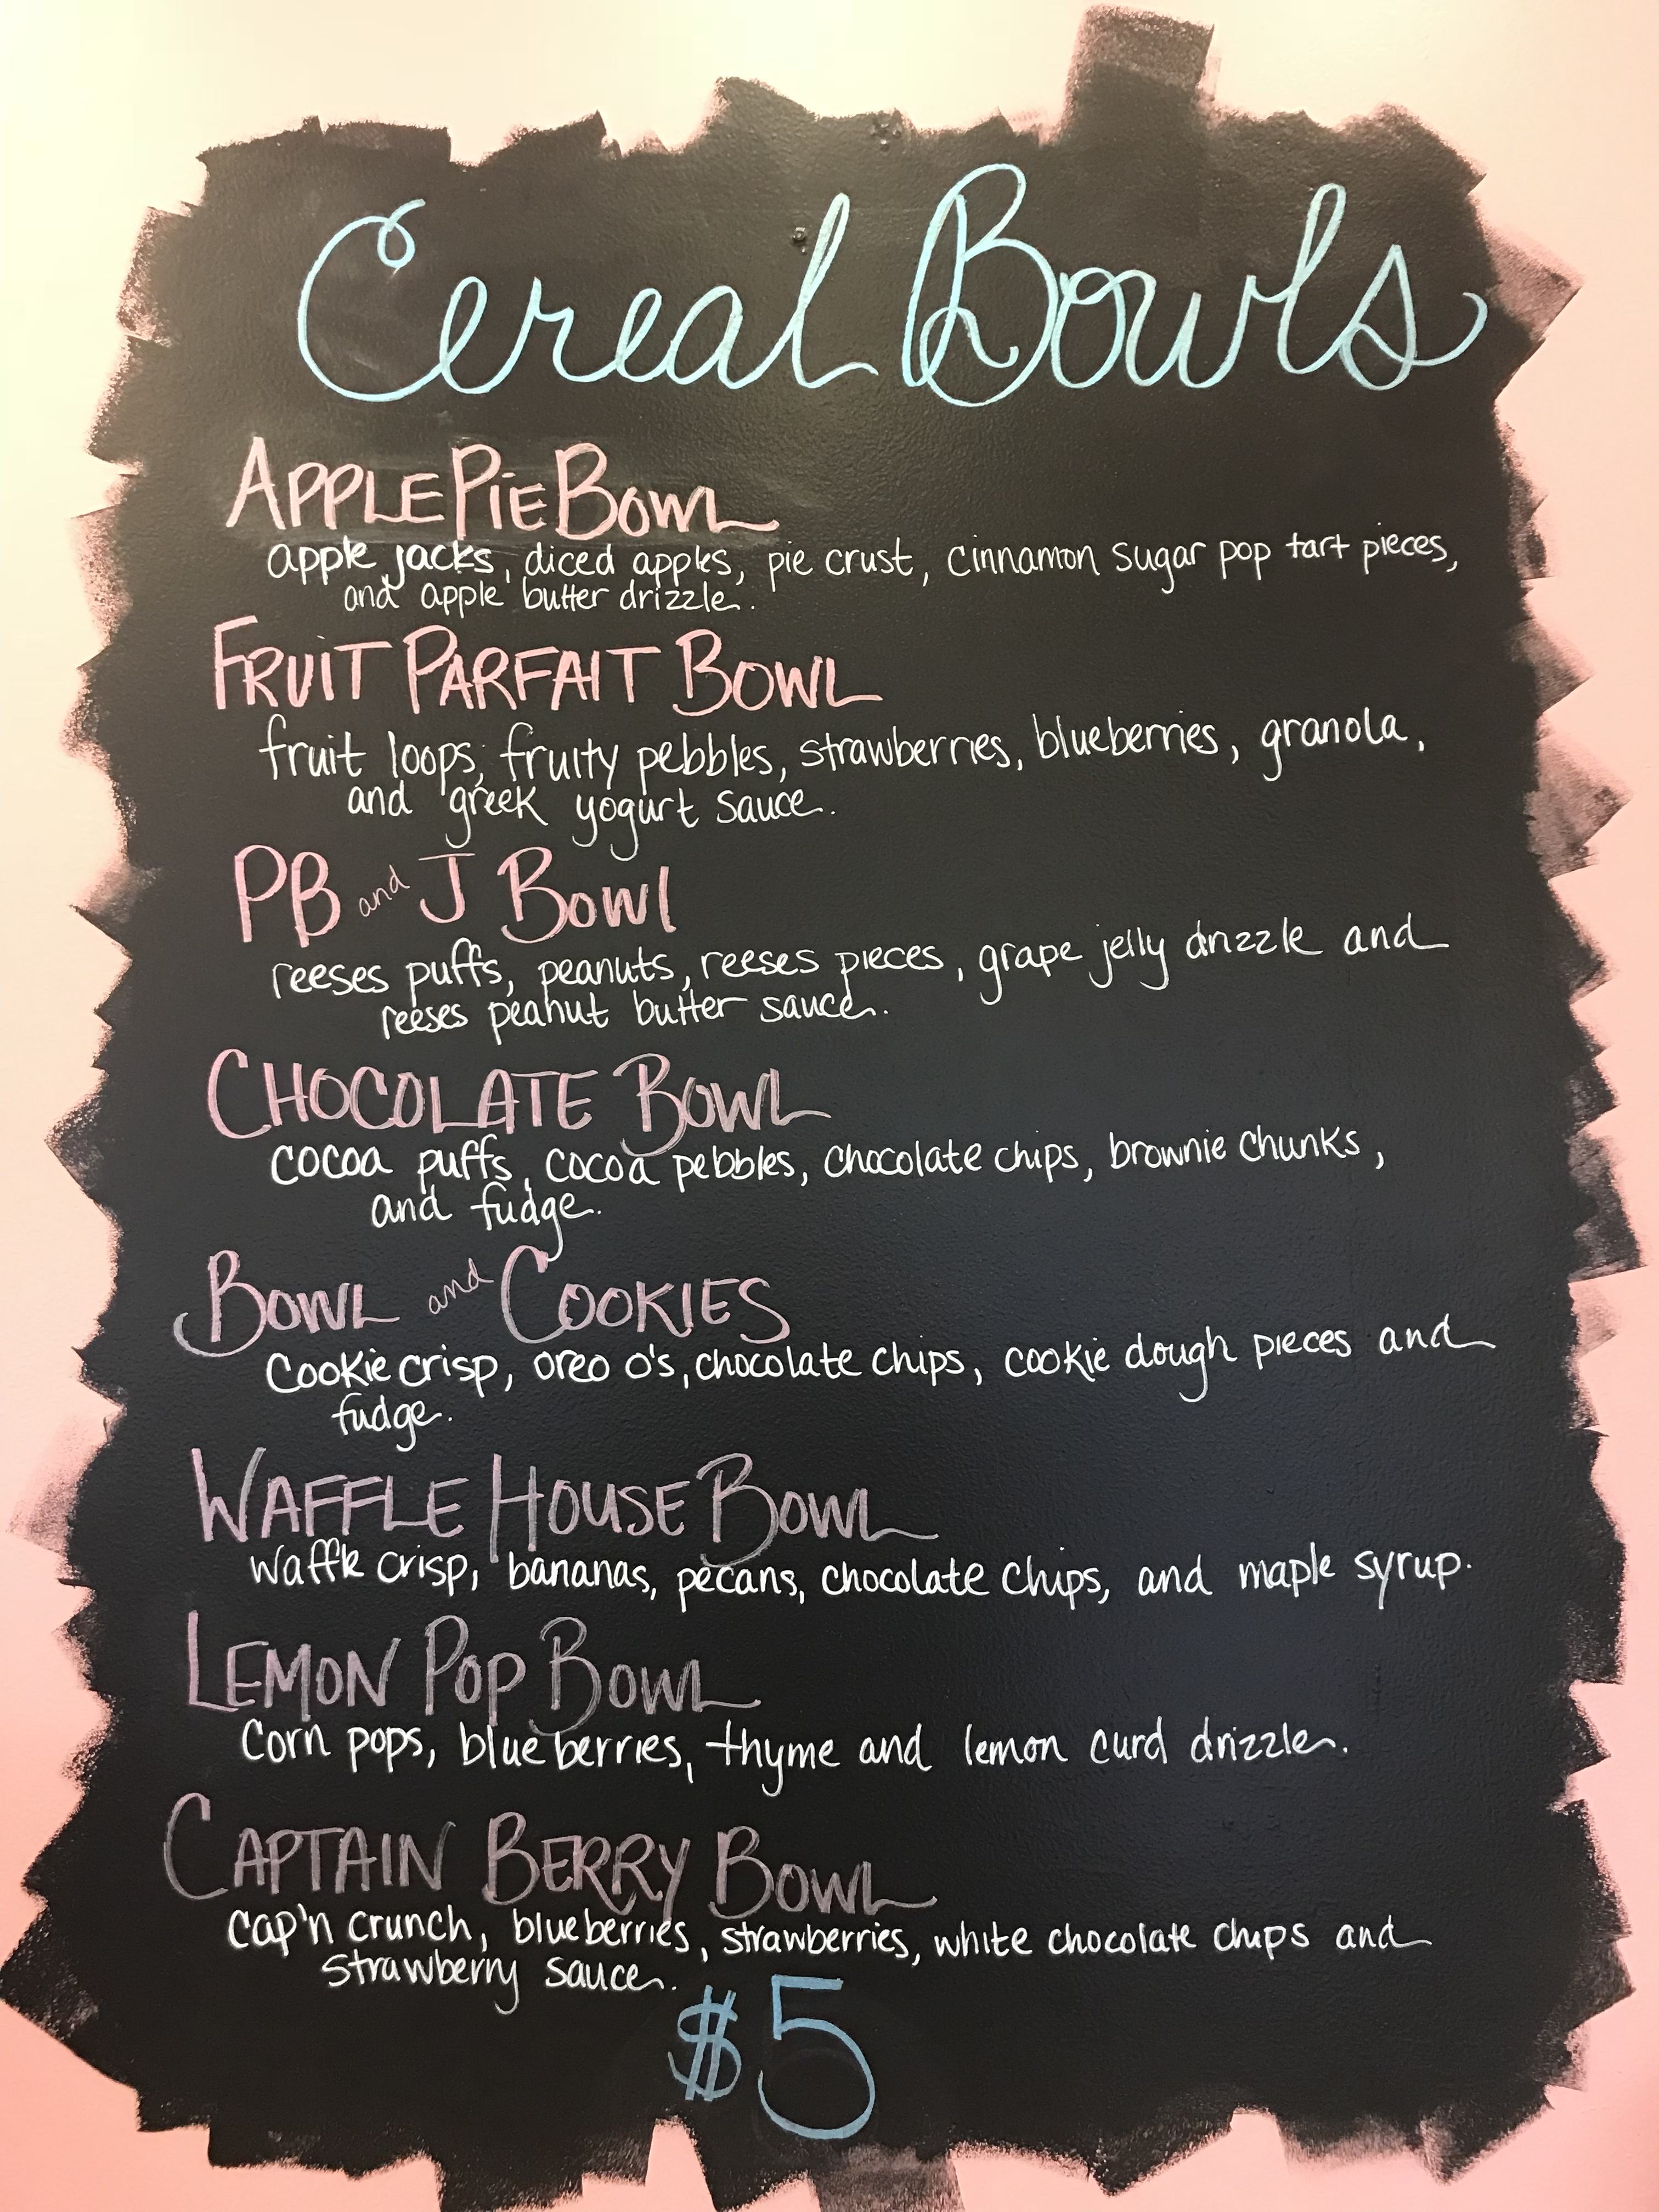 Cereal Bowls
APPLE PIE BOWL
apple jacks, diced apples, pie crust, cinnamon sugar pop tart pieces,
and apple butter drizzle.
FRUIT PARFAIT BOWL
fruit loops, fruity pebbles, strawberries, blueberries, granola,
and greek yogurt sauce.
PB and J Bowl
reeses puffs, peanuts, reeses pieces, grape jelly drizzle and
reeses peanut butter sauce.
CHOCOLATE BOWL
cocoa puffs, cocoa pebbles, chocolate chips, brownie chunks,
and fudge.
BOWL and COOKIES
Cookie crisp, oreo o's, chocolate chips, cookie dough pieces and
fudge.
WAFFLE HOUSE BOWL
Waffle crisp, bananas, pecans, chocolate chips, and maple syrup.
LEMON POP BOWL
Corn pops, blueberries, thyme and lemon curd drizzle.
CAPTAIN BERRY BOWL
cap'n crunch, blueberries, strawberries, white chocolate chips and
strawberry sauce.
$5